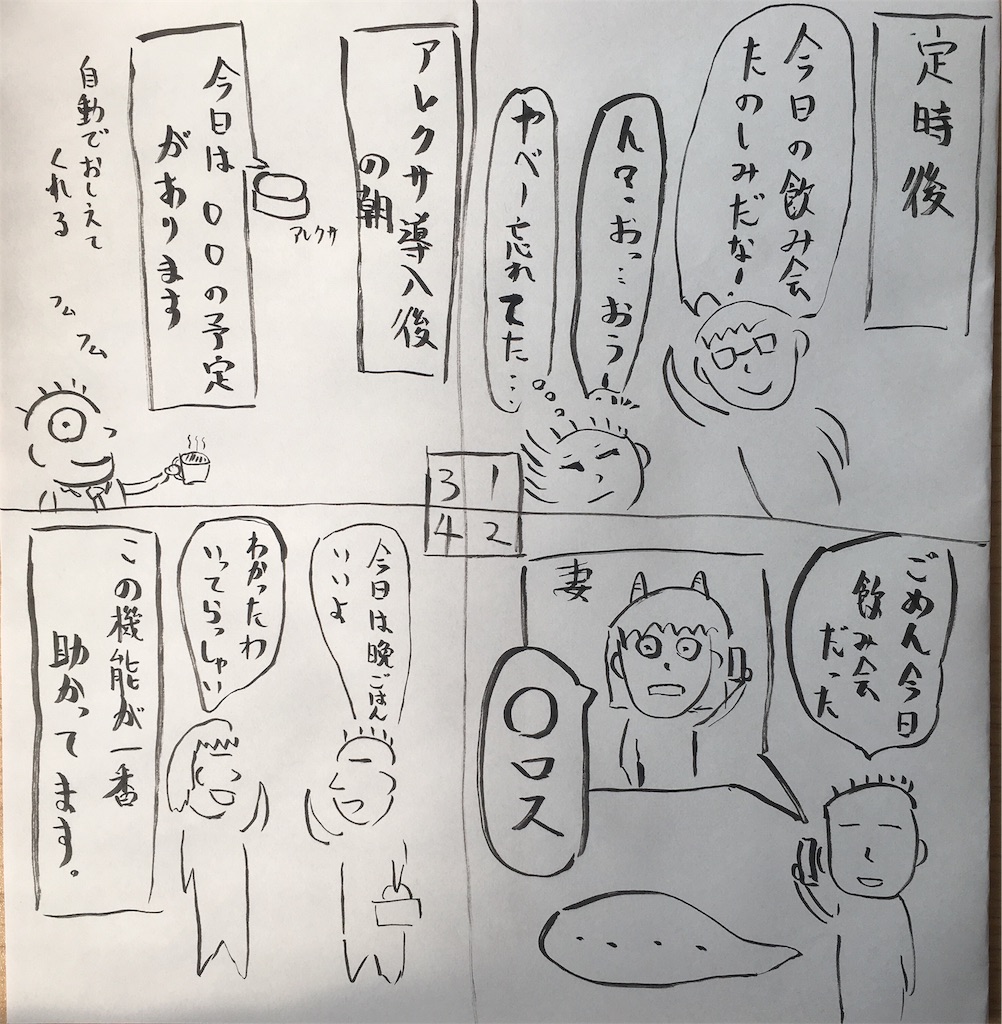 定時後
今日の飲み会
たのしみだな!
ん?おっ…おうー
ヤベー忘れてた…
ごめん今日
飲み会
だった
妻
〇ロス
・・・・
アレクサ導入後
の朝
今日は〇〇の予定
があります
アレクサ
自動でおしえて
くれる
フム
フム
今日は晩ごはん
いいよ
わかったわ
いってらっしゃい
この機能が一番
助かってます。
3 1
4 2